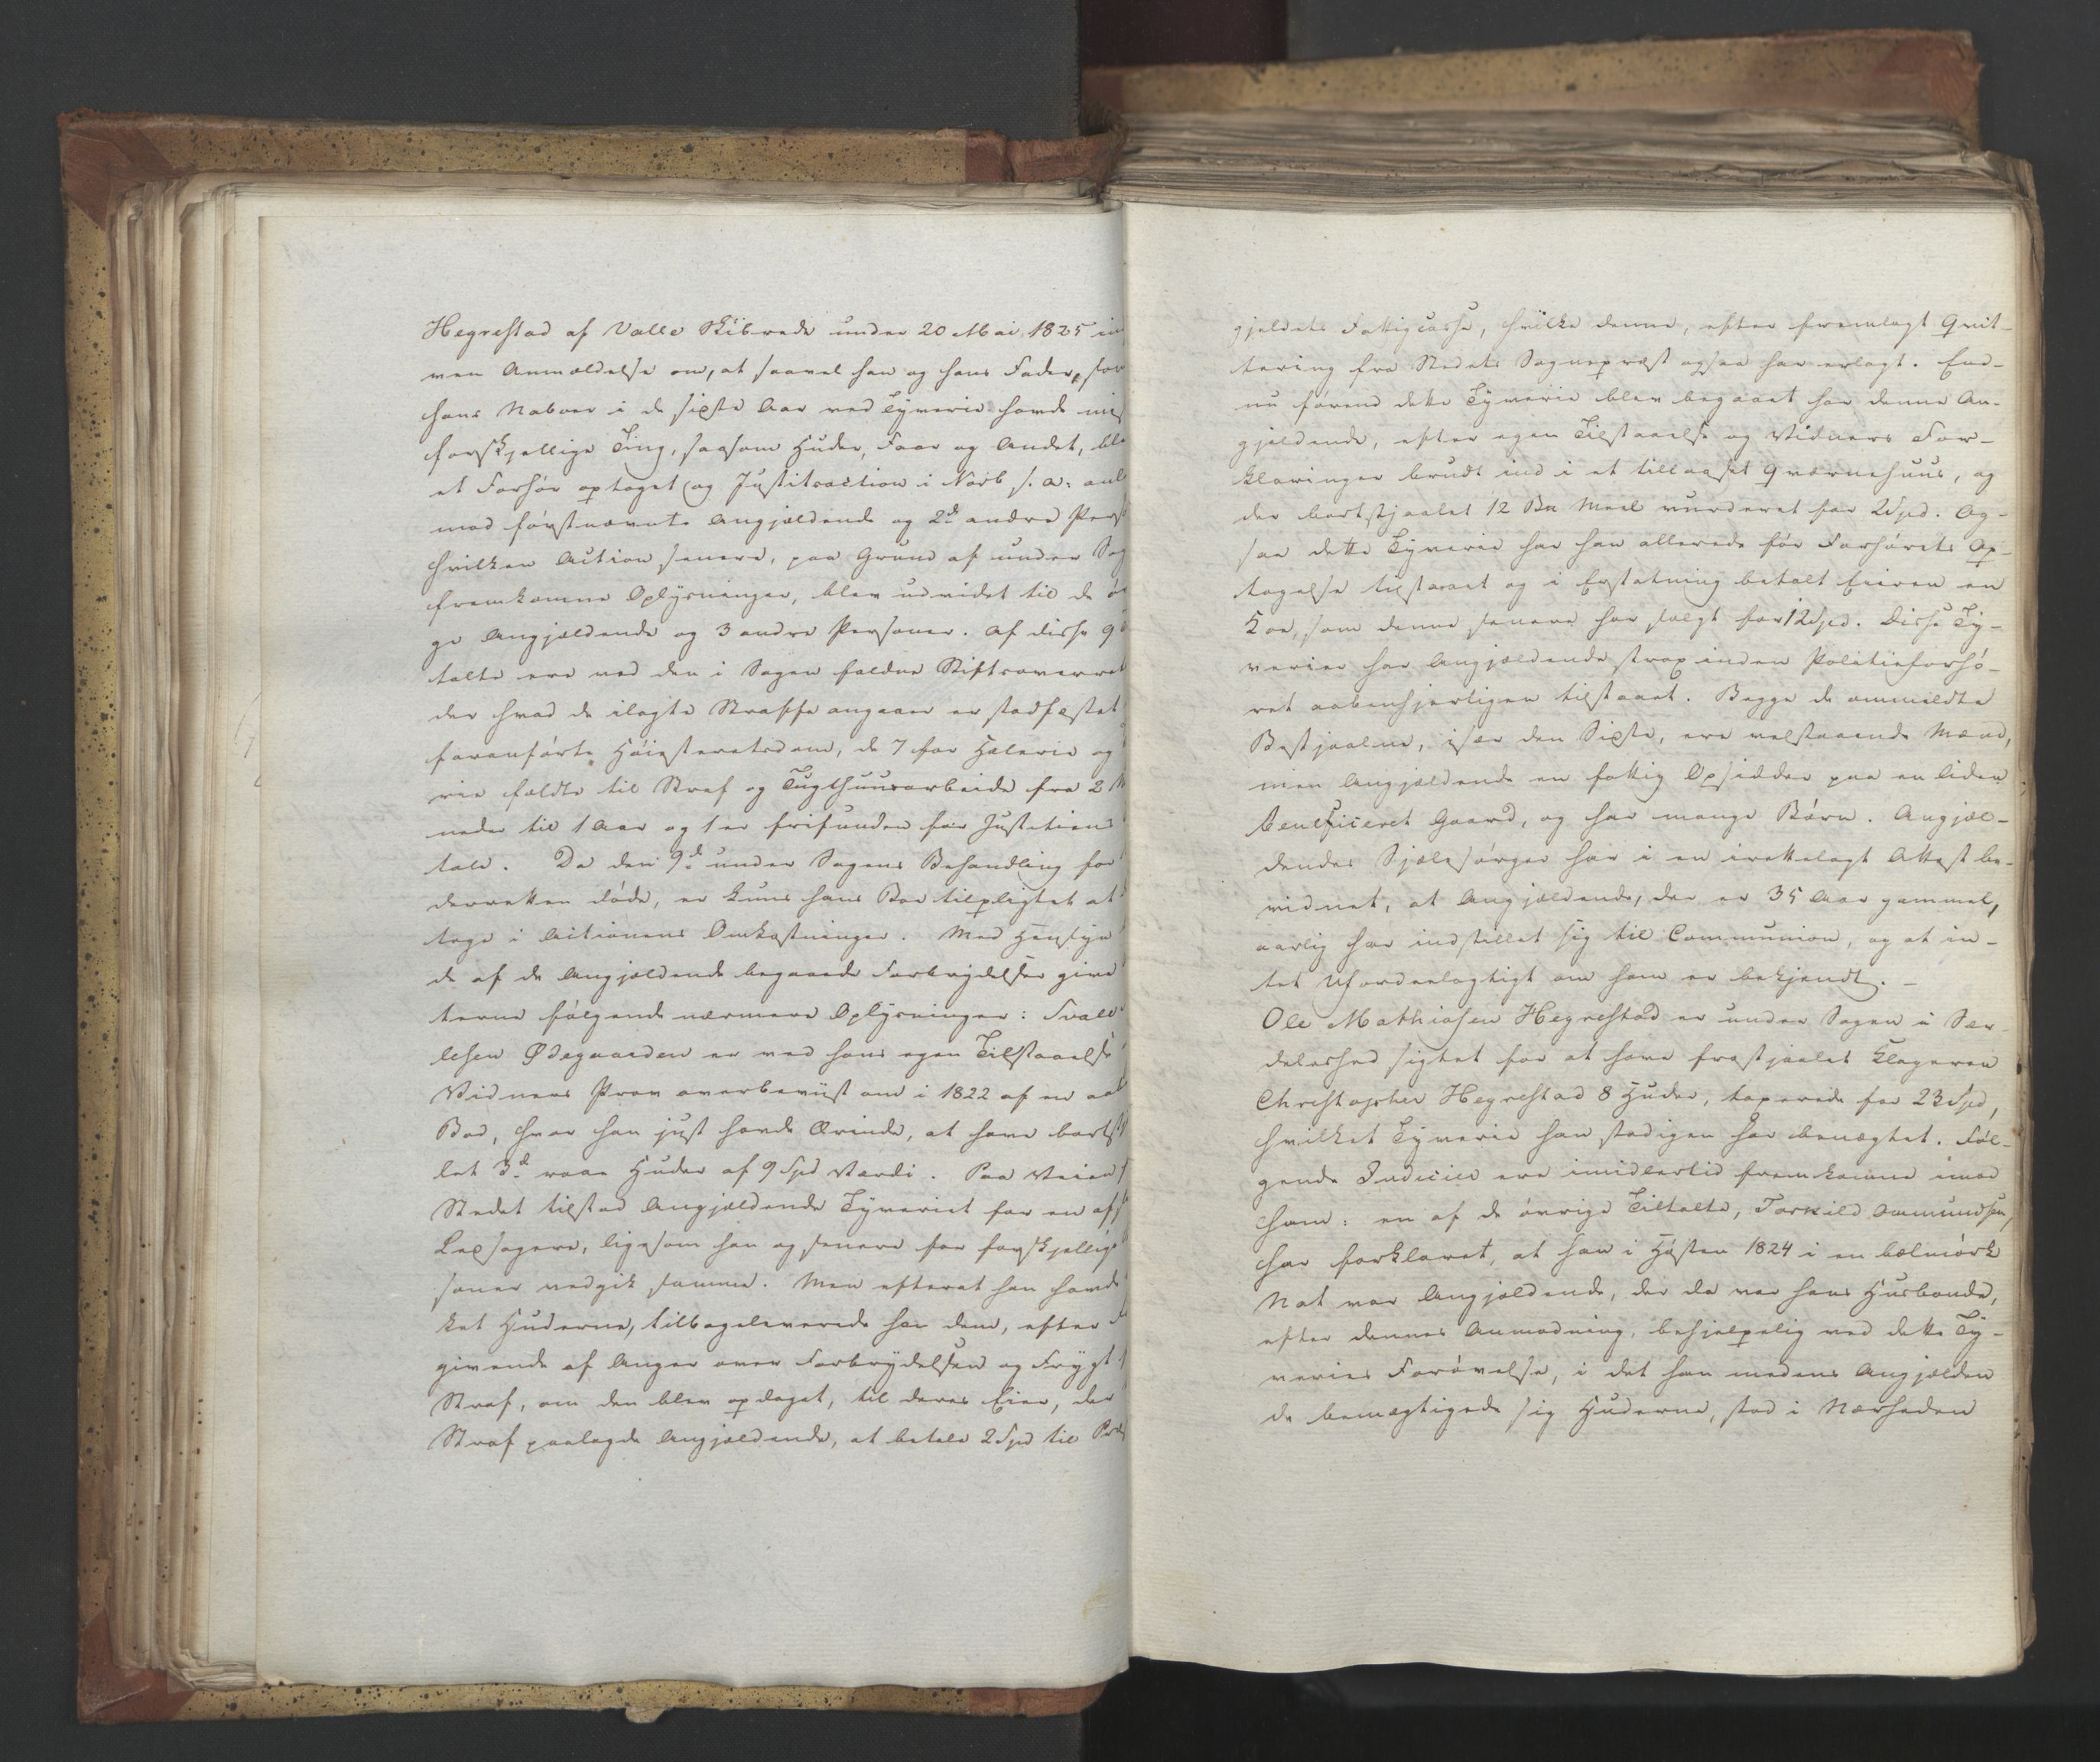 Hegrestad af Valle Skibrede under 20 Mai 1825 in
ven Anmældelse om, at saavel han og hans Fader, som
hans Naboer i de sidste Aar ved Tyverie havde mis
forskjellige Ting, saasom Huder, Faar og Andet, ble
et Forhør optaget og Justitsaction i Novb s. A. anl
mod førstnævnte Angjældende og 2de andre Pers
hvilken Action senere, paa Grund af under Sag
fremkomne Oplysninger, blev udvidet til de ø
ge Angjældende og 3 andre Personer. Af disse 9
talte ere ved den i Sagen faldne Stiftsoverret
der hvad de ilagte Straffe angaaer er stadfæstet
foranførte Høiesteretsdom, de 7 for Hælerie og
rie fældte til Straf og Tugthuusarbeide fra 2 M
neder til 1 Aar og 1 er frifunden for Justitiens
tale. Da den 9de under Sagens Behandling for
derretten døde, er kuns hans Boe tilpligtet at
tage i Actionens Omkostninger. Med Hensyn
de af de Angjældende begaaede Forbrydelser give
terne følgende nærmere Oplysninger:
lesen Ødegaarden er ved hans egen Tilstaaelse
Vidners Prov overbeviist om i 1822 af en aab
Bod, hvor han just havde Ærinde, at have bortst
let 3de raae Huder af 9 Spd Værdi. Paa Veien
Stedet tilstod Angjældende Tyveriet for en af
Ledsagere, ligesom han og senere for forskjellige
soner vedgik samme. Men efterat han havde
ket Huderne, tilbageleverede han dem, efter
givende af Anger over Forbrydelsen og Frygt
Straf, om den blev opdaget, til deres Eier, der
Straf paalagde Angjældende, at betale 2 Spd til Præs
gjeldets Fattigcasse, hvilke denne, efter fremlagt Qvit-
tering fra Stedets Sognepræst ogsaa har erlagt. End-
nu førend dette Tyverie blev begaaet har denne An-
gjældende, efter egen Tilstaaelse og Vidners For-
klaringer brudt ind i et tillaaset Qværnehuus, og
der bortstjaalet 12 Bn Meel vurderet for 2 Spd. Og-
saa dette Tyverie har han allerede før Forhørets Op-
tagelse tilstaaet og i Erstatning betalt Eieren en
Koe, som denne senere har solgt for 12 Spd. Disse Ty-
verier har Angjældende strax inden Politieforhø-
ret aabenhjertigen tilstaaet. Begge de ommeldte
Bestjaalne, især den Sidste, ere velstaaende Mænd,
men Angjældende en fattig Opsidder paa en liden
beneficeret Gaard, og har mange Børn. Angjæl-
dendes Sjælesørger har i en irettelagt Attest be-
vidnet, at Angjældende, der er 35 Aar gammel,
aarlig har indstillet sig til Communion, og at in-
tet Ufordeelagtigt om ham er bekjendt. –
Ole Mathiasen Hegrestad er under Sagen i Sær-
deleshed sigtet for at have frastjaalet Klageren
Christopher Hegrestad 8 Huder, taxerede for 23 Spd,
hvilket Tyverie han stadigen har benægtet. Føl-
gende Indicier ere imidlertid fremkomne imod
ham: en af de øvrige Tiltalte, Torkild Aamundsen,
har forklaret, at han i Høsten 1824 i en bælmørk
Nat var Angjældende, der da var hans Husbonde,
efter dennes Anmodning, behjelpelig ved dette Ty-
veries Forøvelse, i det han medens Angjælden
de bemægtigede sig Huderne, stod i Nærheden